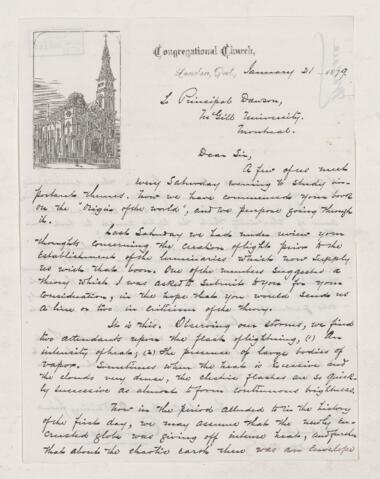 Congregational Church,
London, Ont., January 21 1879.
To Principal Dawson,
McGill University.
Montreal.
Dear Sir,
A few of us meet
every Saturday evening to study im-
portant themes. Now we have commenced your book
on the "Origin of the world", and we purpose going through
it.
Last Saturday we had under review your
thoughts concerning the creation of light prior to the
establishment of the luminaries which now supply
us with that boon. One of the members suggested a
theory which I was asked to submit to you for your
consideration, in the hope that you would send us
a line or two in criticism of the theory.
It is this. Observing our storms, we find
two attendants upon the flash of lightning, (1) An
intensity of heat; (2) The presence of large bodies of
vapor. Sometimes when the heat is excessive and
the clouds very dense, the electric flashes are so quick-
ly successive as almost to form continuous brightness.
Now in the period alluded to in the history
of the first day, we may assume that the newly en-
crusted globe was giving off intense heat; and further
that about the chaotic earth there was an envelope